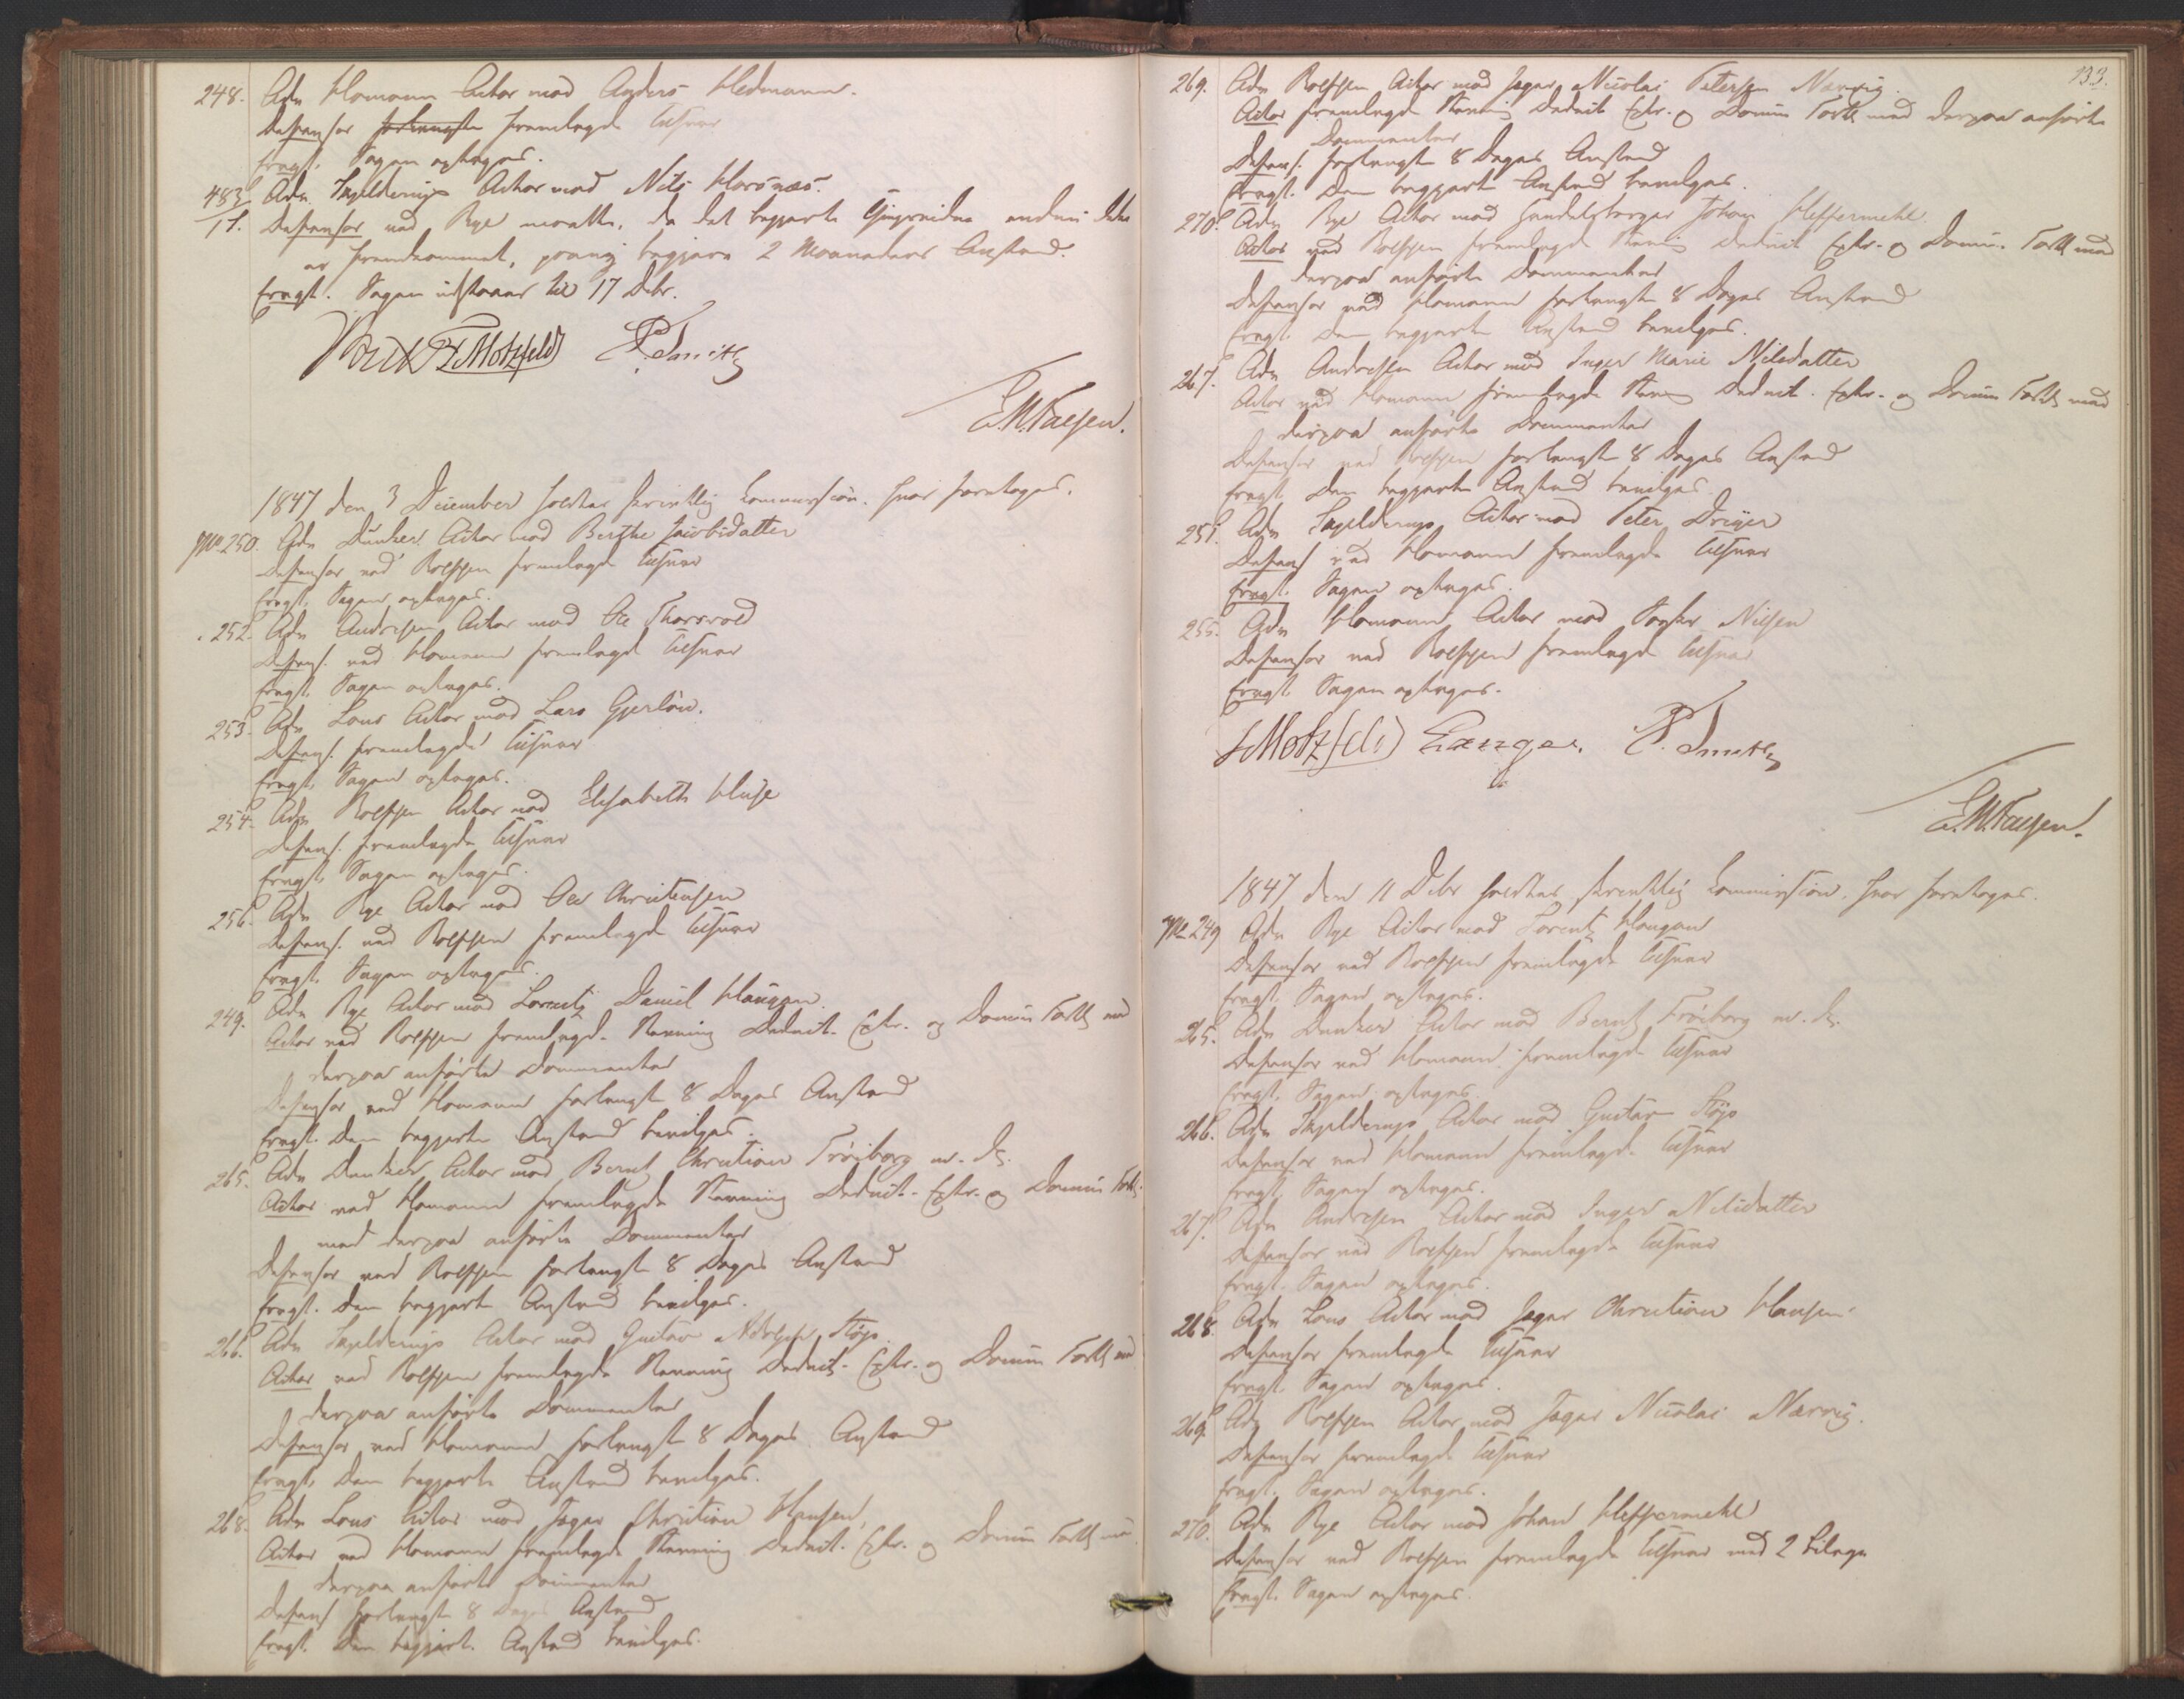 248. Adv. Homann Actor mod Anders Hedmann.
Defensor forlangte fremlagde Tilsvar
Eragt. Sagen optages.
483/1. Adv. Skjelderup Actor mod Nils Horsnæs.
Defensor ved Rye maatte, da det begjærte endnu ikke
er fremkommet, paany begjære 2 Maaneders Anstand.
Eragt. Sagen udstaaer til 17 Debr.
Motzfeldt P. Smith
E.M.Faesen.
1847 den 3 December holdtes skriftlig Commission. hvor foretoges.
No. 250. Adv. Dunker Actor mod Berthe Jacobsdatter
Defensor ved Rolfsen fremlagde Tilsvar
Eragt. Sagen optages.
252. Adv. Andresen Actor mod Ole Thorsrod
Defens. ved Homann fremlagde Tilsvar
Eragt. Sagen optages.
253. Adv. Lous Actor mod Lars Gjerløw.
Defens. fremlagde Tilsvar
Eragt. Sagen optages.
254. Adv. Rolfsen Actor mod Elisabeth Huse
Defens. fremlagde Tilsvar
Eragt. Sagen optages.
256. Adv. Rye Actor mod Ole Christensen
Defens. ved Rolfsen fremlagde Tilsvar
Eragt. Sagen optages.
249. Adv. Rye Actor mod Lorentz Daniel Haugan.
Actor ved Rolfsen fremlagde Stevning Deduct. Extr. og Domm Forkl med
derpaa anførte Dommenter
Defensor ved Homann forlangte 8 Dages Anstand
Eragt. Den begjærte Anstand bevilges.
265. Adv. Dunker Actor mod Bernt Christian Trøiborg m. fl.
Actor ved Homann fremlagde Stevning Deduct. Extr. og Domm Forkl.
med derpaa anførte Dommenter
Defensor ved Rolfsen forlangte 8 Dages Anstand
Eragt. Den begjærte Anstand bevilges.
266. Adv. Skjelderup Actor mod Gustav Adolph Støp.
Actor ved Rolfsen fremlagde Stevning Deduct. Extr. og Domm Forkl med
derpaa anførte Dommenter
Defensor ved Homann forlangte 8 Dages Anstand
Eragt. Den begjærte Anstand bevilges.
268. Adv. Lous Actor mod Jæger Christian Hansen,
Actor ved Homann fremlagde Stevning Deduct. Extr. og Domm Forkl med
derpaa anførte Dommenter
Defens. forlangte 8 Dages Anstand
Eragt. Den begjærte Anstand bevilges.
133.
269. Adv. Rolfsen Actor mod Jæger Nicolai Petersen Narvig.
Actor fremlagde Stevning Deduct Extr. og Domm Forkl med derpaa anførte
Dommenter
Defens. forlangte 8 Dages Anstand
Eragt. Den begjærte Anstand bevilges.
270. Adv. Rye Actor mod Handelsborger Johan Heffermehl.
Actor ved Rolfsen fremlagde Stevning Deduct Extr. og Domm. Forkl med
derpaa anførte Dommenter
Defensor ved Homann forlangte 8 Dages Anstand
Eragt. Den begjærte Anstand bevilges.
267. Adv. Andresen Actor mod Inger Marie Nilsdatter
Actor ved Homann fremlagde Stevning Deduct. Extr. og Domm Forkl med
derpaa anførte Dommenter
Defensor ved Rolfsen forlangte 8 Dages Anstand
Eragt. Den begjærte Anstand bevilges.
251. Adv. Skjelderup Actor mod Peter Dreyer
Defens. ved Homann fremlagde Tilsvar
Eragt. Sagen optages.
255. Adv. Homann Actor mod Nilsen
Defensor ved Rolfsen fremlagde Tilsvar
Eragt. Sagen optages.
Motzfeldt Lange. P. Smith
E.M.Faesen.
1847 den 11 Debr holdtes skriftlig Commission. hvor foretoges.
No. 249 Adv. Rye Actor mod Lorentz Haugan
Defensor ved Rolfsen fremlagde Tilsvar
Eragt. Sagen optages.
265. Adv. Dunker Actor mod Bernt Trøiborg m. fl.
Defensor ved Homann fremlagde Tilsvar
Eragt. Sagen optages
266. Adv. Skjelderup Actor mod Gustav Støp
Defensor ved Homann fremlagde Tilsvar
Eragt. Sagen optages.
267. Adv. Andresen Actor mod Inger Nilsdatter
Defensor ved Rolfsen fremlagde Tilsvar
Eragt. Sagen optages.
268. Adv. Lous Actor mod Jæger Christian Hansen.
Defensor fremlagde Tilsvar
Eragt. Sagen optages.
269. Adv. Rolfsen Actor mod Jæger Nicolai Narvig.
Defensor fremlagde Tilsvar
Eragt. Sagen optages.
270. Adv. Rye Actor mod Johan Heffermehl
Defensor ved Rolfsen fremlagde Tilsvar med 2 Bilage
Eragt. Sagen optages.